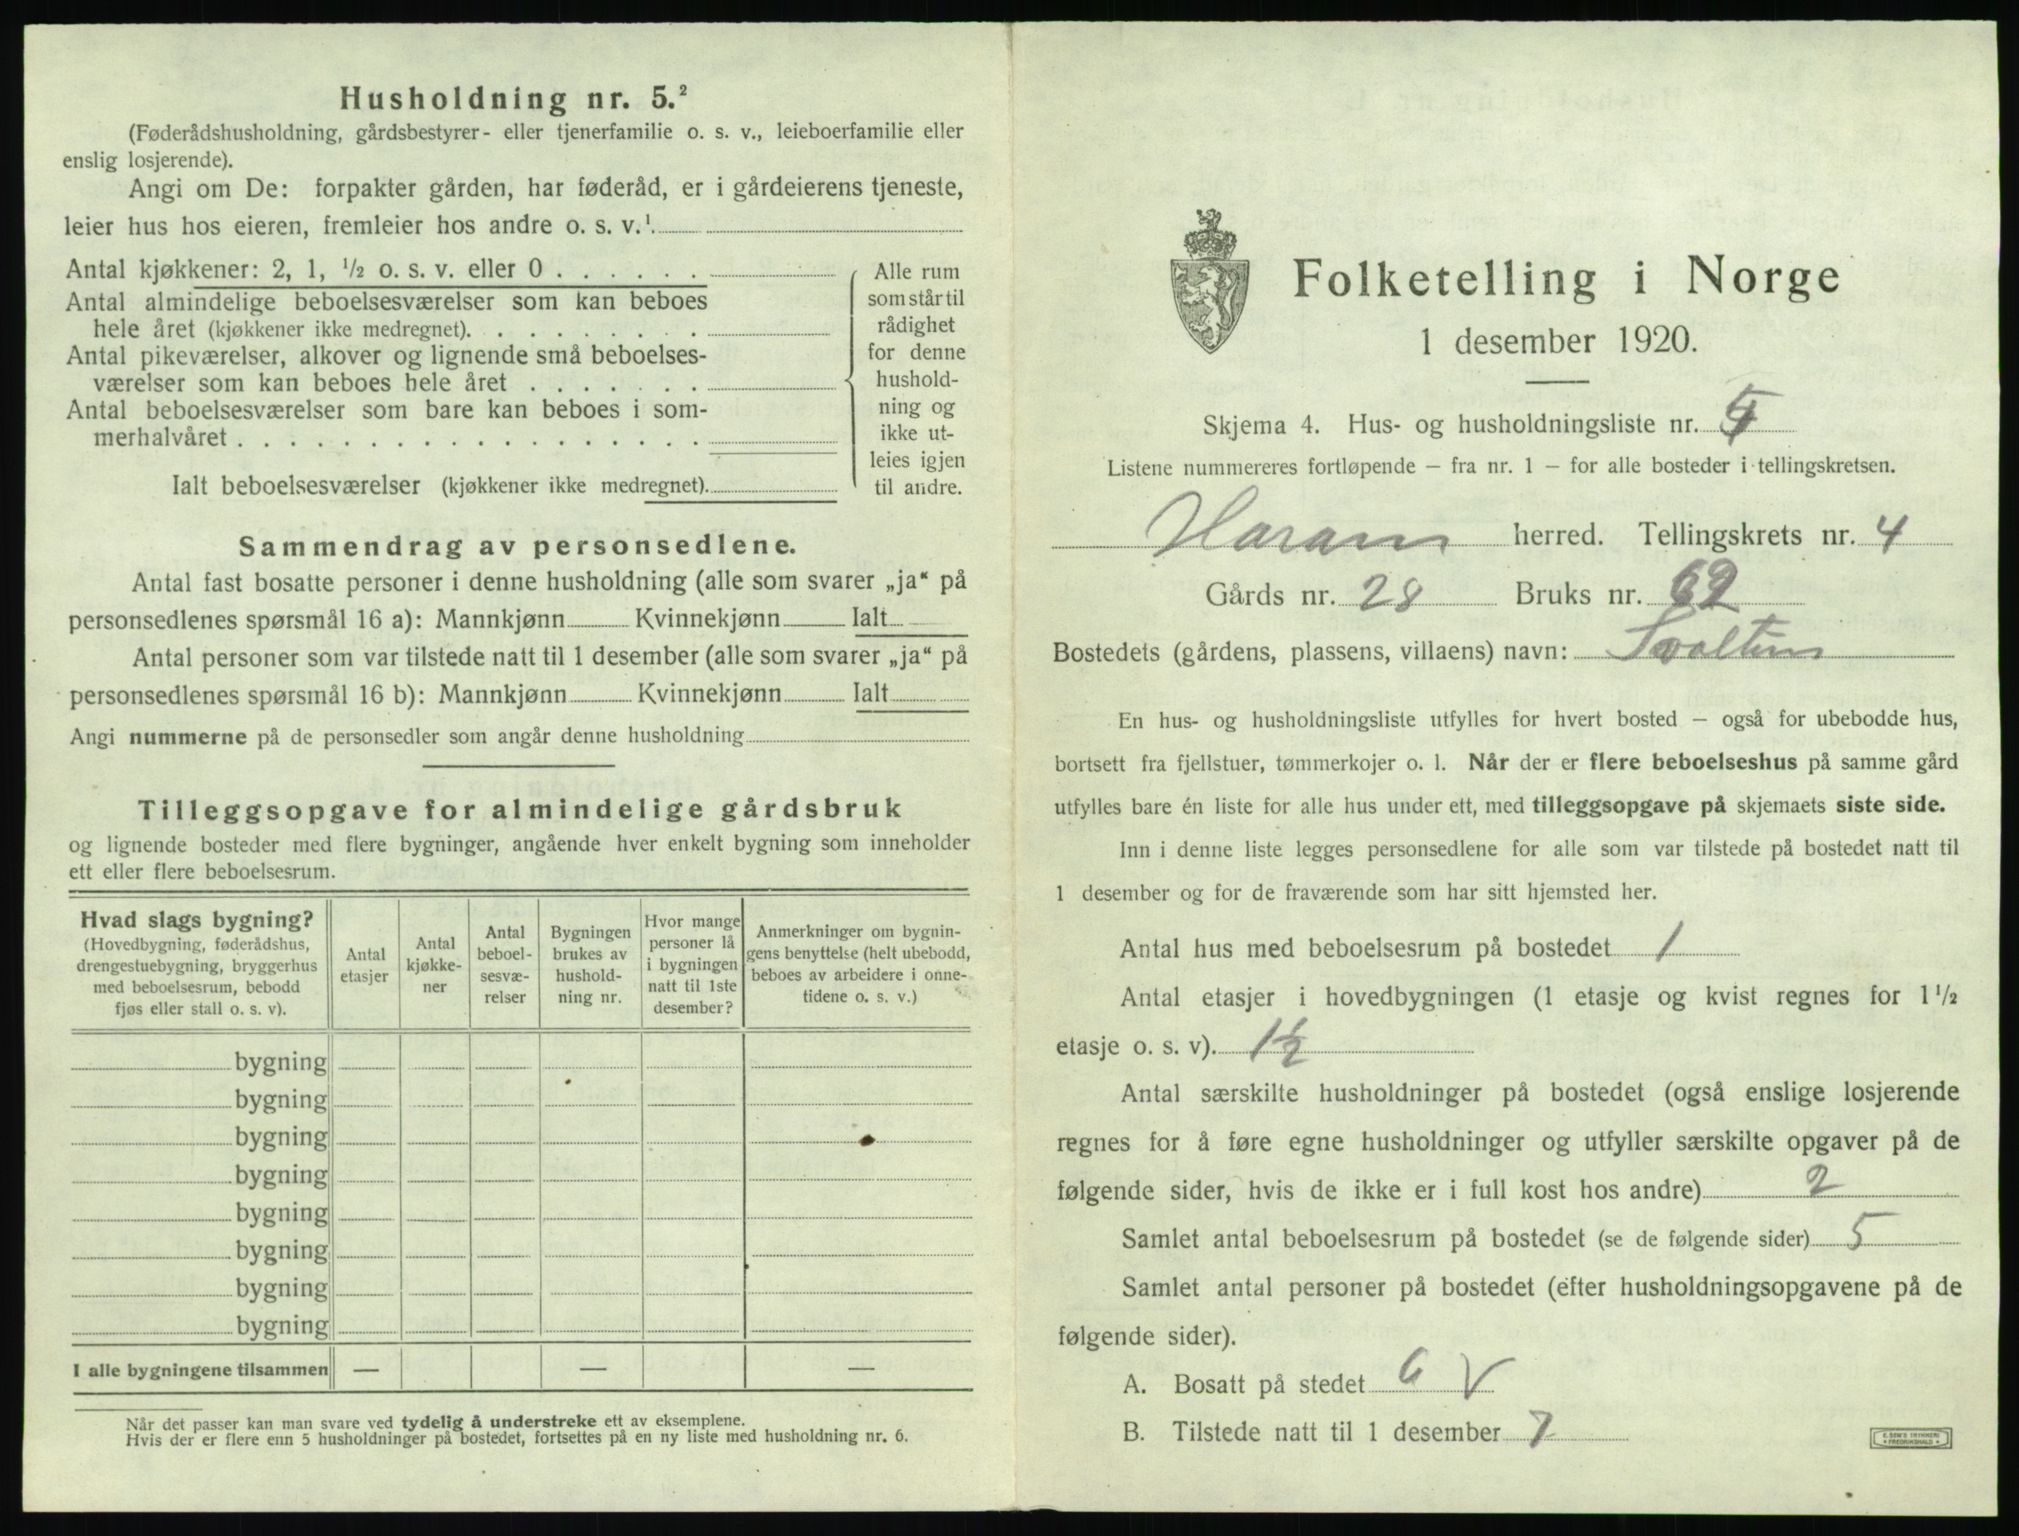 Husholdning nr. 5.²
(Føderådshusholdning, gårdsbestyrer- eller tjenerfamilie o. s. v., leieboerfamilie eller
enslig losjerende).
Angi om De: forpakter gården, har føderåd, er i gårdeierens tjeneste,
leier hus hos eieren, fremleier hos andre o. s. v.¹
Antal kjøkkener: 2, 1, ½ o. s. v. eller 0 . . . . . .
Antal almindelige beboelsesværelser som kan beboes
hele året (kjøkkener ikke medregnet). . . . . . . . .
Antal pikeværelser, alkover og lignende små beboelses-
værelser som kan beboes hele året . . . . . . .
Antal beboelsesværelser som bare kan beboes i som-
merhalvåret . . . . . . . . . . . . . . . . . .
Ialt beboelsesværelser (kjøkkener ikke medregnet).
Alle rum
som står til
rådighet
for denne
hushold-
ning og
ikke ut-
leies igjen
til andre.
Sammendrag av personsedlene.
Antal fast bosatte personer i denne husholdning (alle som svarer „ja“ på
personsedlenes spørsmål 16 a): Mannkjønn Kvinnekjønn Ialt
Antal personer som var tilstede natt til 1 desember (alle som svarer „ja“ på
personsedlenes spørsmål 16 b): Mannkjønn Kvinnekjønn Ialt
Angi nummerne på de personsedler som angår denne husholdning
Tilleggsopgave for almindelige gårdsbruk
og lignende bosteder med flere bygninger, angående hver enkelt bygning som inneholder
ett eller flere beboelsesrum.
Hvad slags bygning?
(Hovedbygning, føderådshus,
drengestuebygning, bryggerhus
med beboelsesrum, bebodd
fjøs eller stall o. s. v).
Antal
etasjer
Antal
kjøkke-
ner
Antal
beboel-
sesvæ-
relser
Bygningen
brukes av
hushold-
ning nr.
Hvor mange
personer lå
i bygningen
natt til 1ste
desember?
Anmerkninger om bygnin-
gens benyttelse (helt ubebodd,
beboes av arbeidere i onne-
tidene o. s. v.)
bygning
bygning
bygning
bygning
bygning
bygning
bygning
bygning
I alle bygningene tilsammen — — —
Når det passer kan man svare ved tydelig å understreke ett av eksemplene.
Hvis der er flere enn 5 husholdninger på bostedet, fortsettes på en ny liste med husholdning nr. 6.
Folketelling i Norge
1 desember 1920.
Skjema 4. Hus- og husholdningsliste nr.
Listene nummereres fortløpende — fra nr. 1 — for alle bosteder i tellingskretsen.
Haram herred. Tellingskrets nr. 4
Gårds nr. 28 Bruks nr. 69
Bostedets (gårdens, plassens, villaens) navn:
En hus- og husholdningsliste utfylles for hvert bosted — også for ubebodde hus,
bortsett fra fjellstuer, tømmerkojer o. l. Når der er flere beboelseshus på samme gård
utfylles bare én liste for alle hus under ett, med tilleggsopgave på skjemaets siste side.
Inn i denne liste legges personsedlene for alle som var tilstede på bostedet natt til
1 desember og for de fraværende som har sitt hjemsted her.
Antal hus med beboelsesrum på bostedet 1
Antal etasjer i hovedbygningen (1 etasje og kvist regnes for 1½
etasje o. s. v). 1½
Antal særskilte husholdninger på bostedet (også enslige losjerende
regnes for å føre egne husholdninger og utfyller særskilte opgaver på de
følgende sider, hvis de ikke er i full kost hos andre) 2
Samlet antal beboelsesrum på bostedet (se de følgende sider) 5
Samlet antal personer på bostedet (efter husholdningsopgavene på de
følgende sider).
A. Bosatt på stedet 6 V
B. Tilstede natt til 1 desember 7